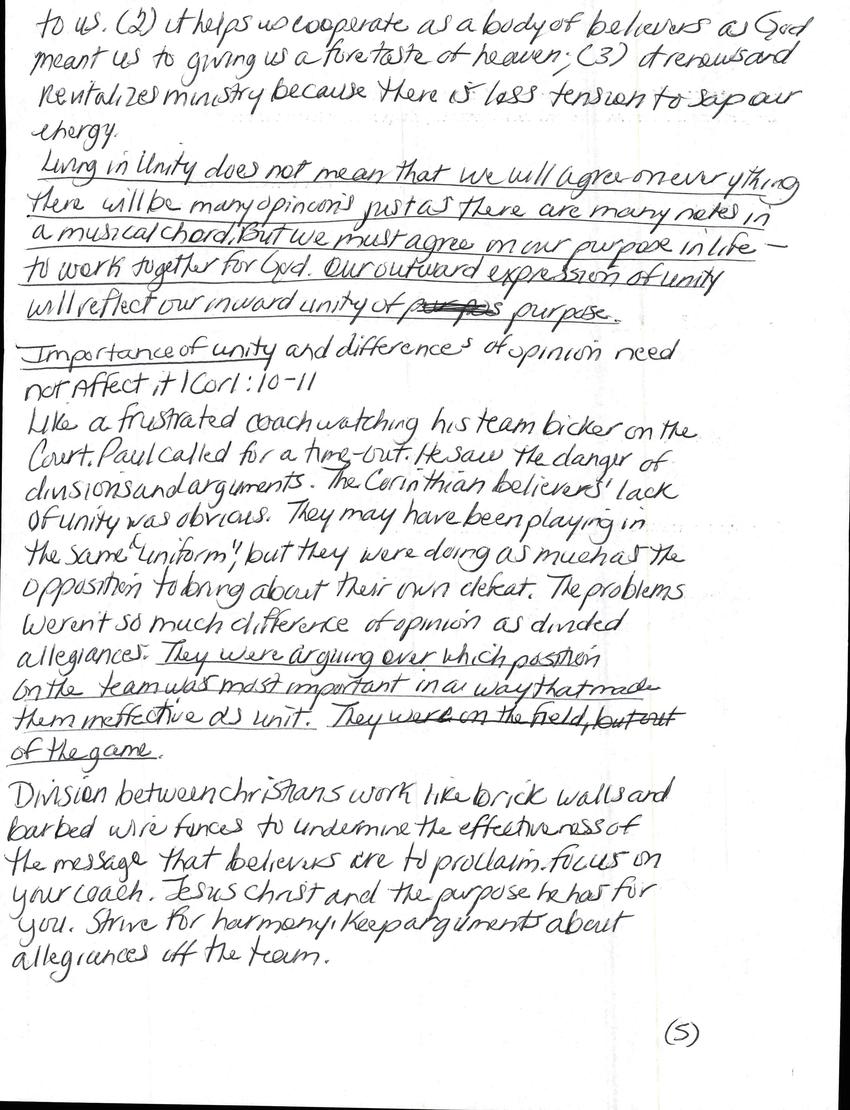 to us. (2) it helps us cooperate as a body of believers as God
meant us to giving us a foretaste of heaven; (3) it renews and
Revitalizes ministry because there is less tension to sap our
energy.
Living in Unity does not mean that we will agree on everything
there will be many opincon's just as there are many notes in
a musical chord, But we must agree on our purpose in life -
to work together for God. Our outward expression of unity
will reflect our inward unity of purpos purpose.
Importance of unity and differences of opinion need
not Affect it 1 Cor 1:10-11
Like a frustrated coach watching his team bicker on the
Court. Paul called for a time-out. He saw the danger of
divisions and arguments. The Corinthian believers' lack
of unity was obvious. They may have been playing in
the same "uniform", but they were doing as much as the
opposition to bring about their own defeat. The problems
weren't so much difference of opinion as divided
allegiances. They were arguing over which position
on the team was most important in a way that made
them ineffective as unit. They were on the field, but out
of the game.
Division between christians work like brick walls and
barbed wire fences to undermine the effectiveness of
the message that believers are to proclaim. focus on
your coach. Jesus Christ and the purpose he has for
you. Strive for harmony, Keep arguments about
allegiances off the team.
(5)